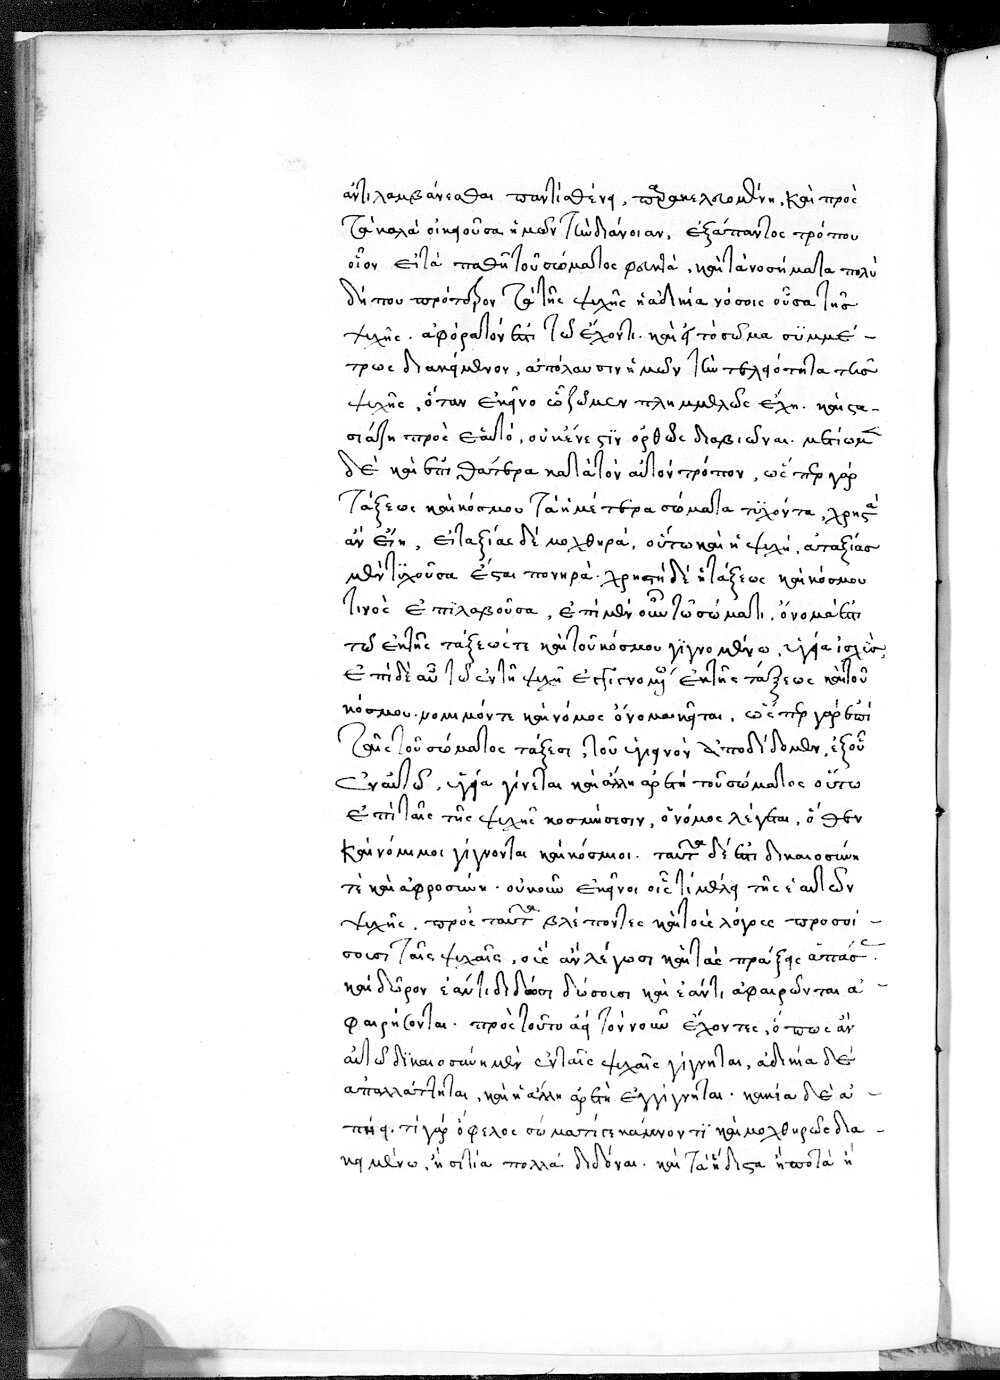 ἀντιλαμβάνεσθαι παντὶ σθένει, παρακελευομένη. καὶ πρὸς
τὰ καλὰ οἰκειοῦσα ἡμῶν τὴν διάνοιαν, ἐξάπαντος τρόπου
οἷον εἰ τὰ πάθη τοῦ σώματος φευκτὰ, καὶ τὰ νοσήματα πολὺ
δήπου πρότερον τὰ τῆς ψυχῆς ἡ ἀδικία νόσος οὖσα τῆς
ψυχῆς. ἀφόρητόν ἐστι τῶ ἔχοντι. καὶ εἰ τὸ σῶμα συμμέ-
τρως διακείμενον, ἀπόλαυσιν ἡμῶν τὴν τελειότητα τῆς
ψυχῆς, ὅταν ἐκεῖνο πλημμελῶς ἔχη. καὶ στα-
σιάζη πρὸς ἑαυτό, οὐκ ἔνεστιν ὀρθῶς διαβιῶναι. μετίωμεν
δὲ καὶ ἐπὶ θάτερα κατὰ τὸν αὐτὸν τρόπον, ὥσπερ γὰρ
τάξεως καὶ κόσμου τὰ ἡμέτερα σώματα τυχόντα, χρηστὰ
ἂν εἴη, εἰ ταξίας δὲ μοχθηρά, οὕτω καὶ ἡ ψυχή, ἀταξίας
μὲν τυχοῦσα ἔσται πονηρά. χρηστὴ δὲ ἡ τάξεως καὶ κόσμου
τινὸς ἐπιλαβοῦσα, ἐπὶ μὲν οὖν τῷ σώματι, ὄνομά ἐστι
τῶ ἐκ τῆς τάξεώς τε καὶ τοῦ κόσμου γιγνομένω, ὑγεία ἰσχύς,
ἐπὶ δὲ αὖ τῶ ἐν τῆ ψυχῆ ἐγγιγνομένω ἐκ τῆς τάξεως καὶ τοῦ
κόσμου. νόμιμόν τε καὶ νόμος ὄνομα κεῖται, ὥσπερ γὰρ ἐπὶ
ταῖς τοῦ σώματος τάξεσι, τοῦ ὑγιεινὸν ἀποδίδομεν, ἐξ οὗ
ἐν αὐτῶ, ὑγεία γίνεται καὶ ἄλλη ἀρετὴ τοῦ σώματος οὕτω
ἐπὶ ταῖς τῆς ψυχῆς κοσμήσεσιν, ὁ νόμος λέγεται, ὅθεν
καὶ νόμιμοι γίγνονται καὶ κόσμιοι. ταῦτα δέ ἐστι δικαιοσύνη
τὲ καὶ σωφροσύνη. οὐκοῦν ἐκεῖνοι οἷς τὶ μέλει τῆς ἑαυτῶν
ψυχῆς, πρὸς ταῦτα βλέποντες καὶ τοὺς λόγους προσοί-
σουσι ταῖς ψυχαῖς, οὓς ἂν λέγωσι καὶ τὰς πράξεις ἁπάσας.
καὶ δῶρον ἐάν τι διδῶσι δώσουσι καὶ ἐάν τι ἀφαιρῶνται ἀ-
φαιρήσονται. πρὸς τοῦτο ἀεὶ τὸν νοῦν ἔχοντες, ὅπως ἂν
αὐτῶ δικαιοσύνη μὲν ἐν ταῖς ψυχαῖς γίγνηται, ἀδικία δὲ
ἀπαλλάττηται, καὶ ἡ ἄλλη ἀρετὴ ἐγγίγνηται. κακία δὲ ἀ-
πίῃ. τί γὰρ ὄφελος σώματί γε κάμνοντι καὶ μοχθηρῶς δια-
κειμένω, ἢ σιτία πολλὰ διδόναι. καὶ τὰ ἥδιστα ἢ ποτὰ ἢ